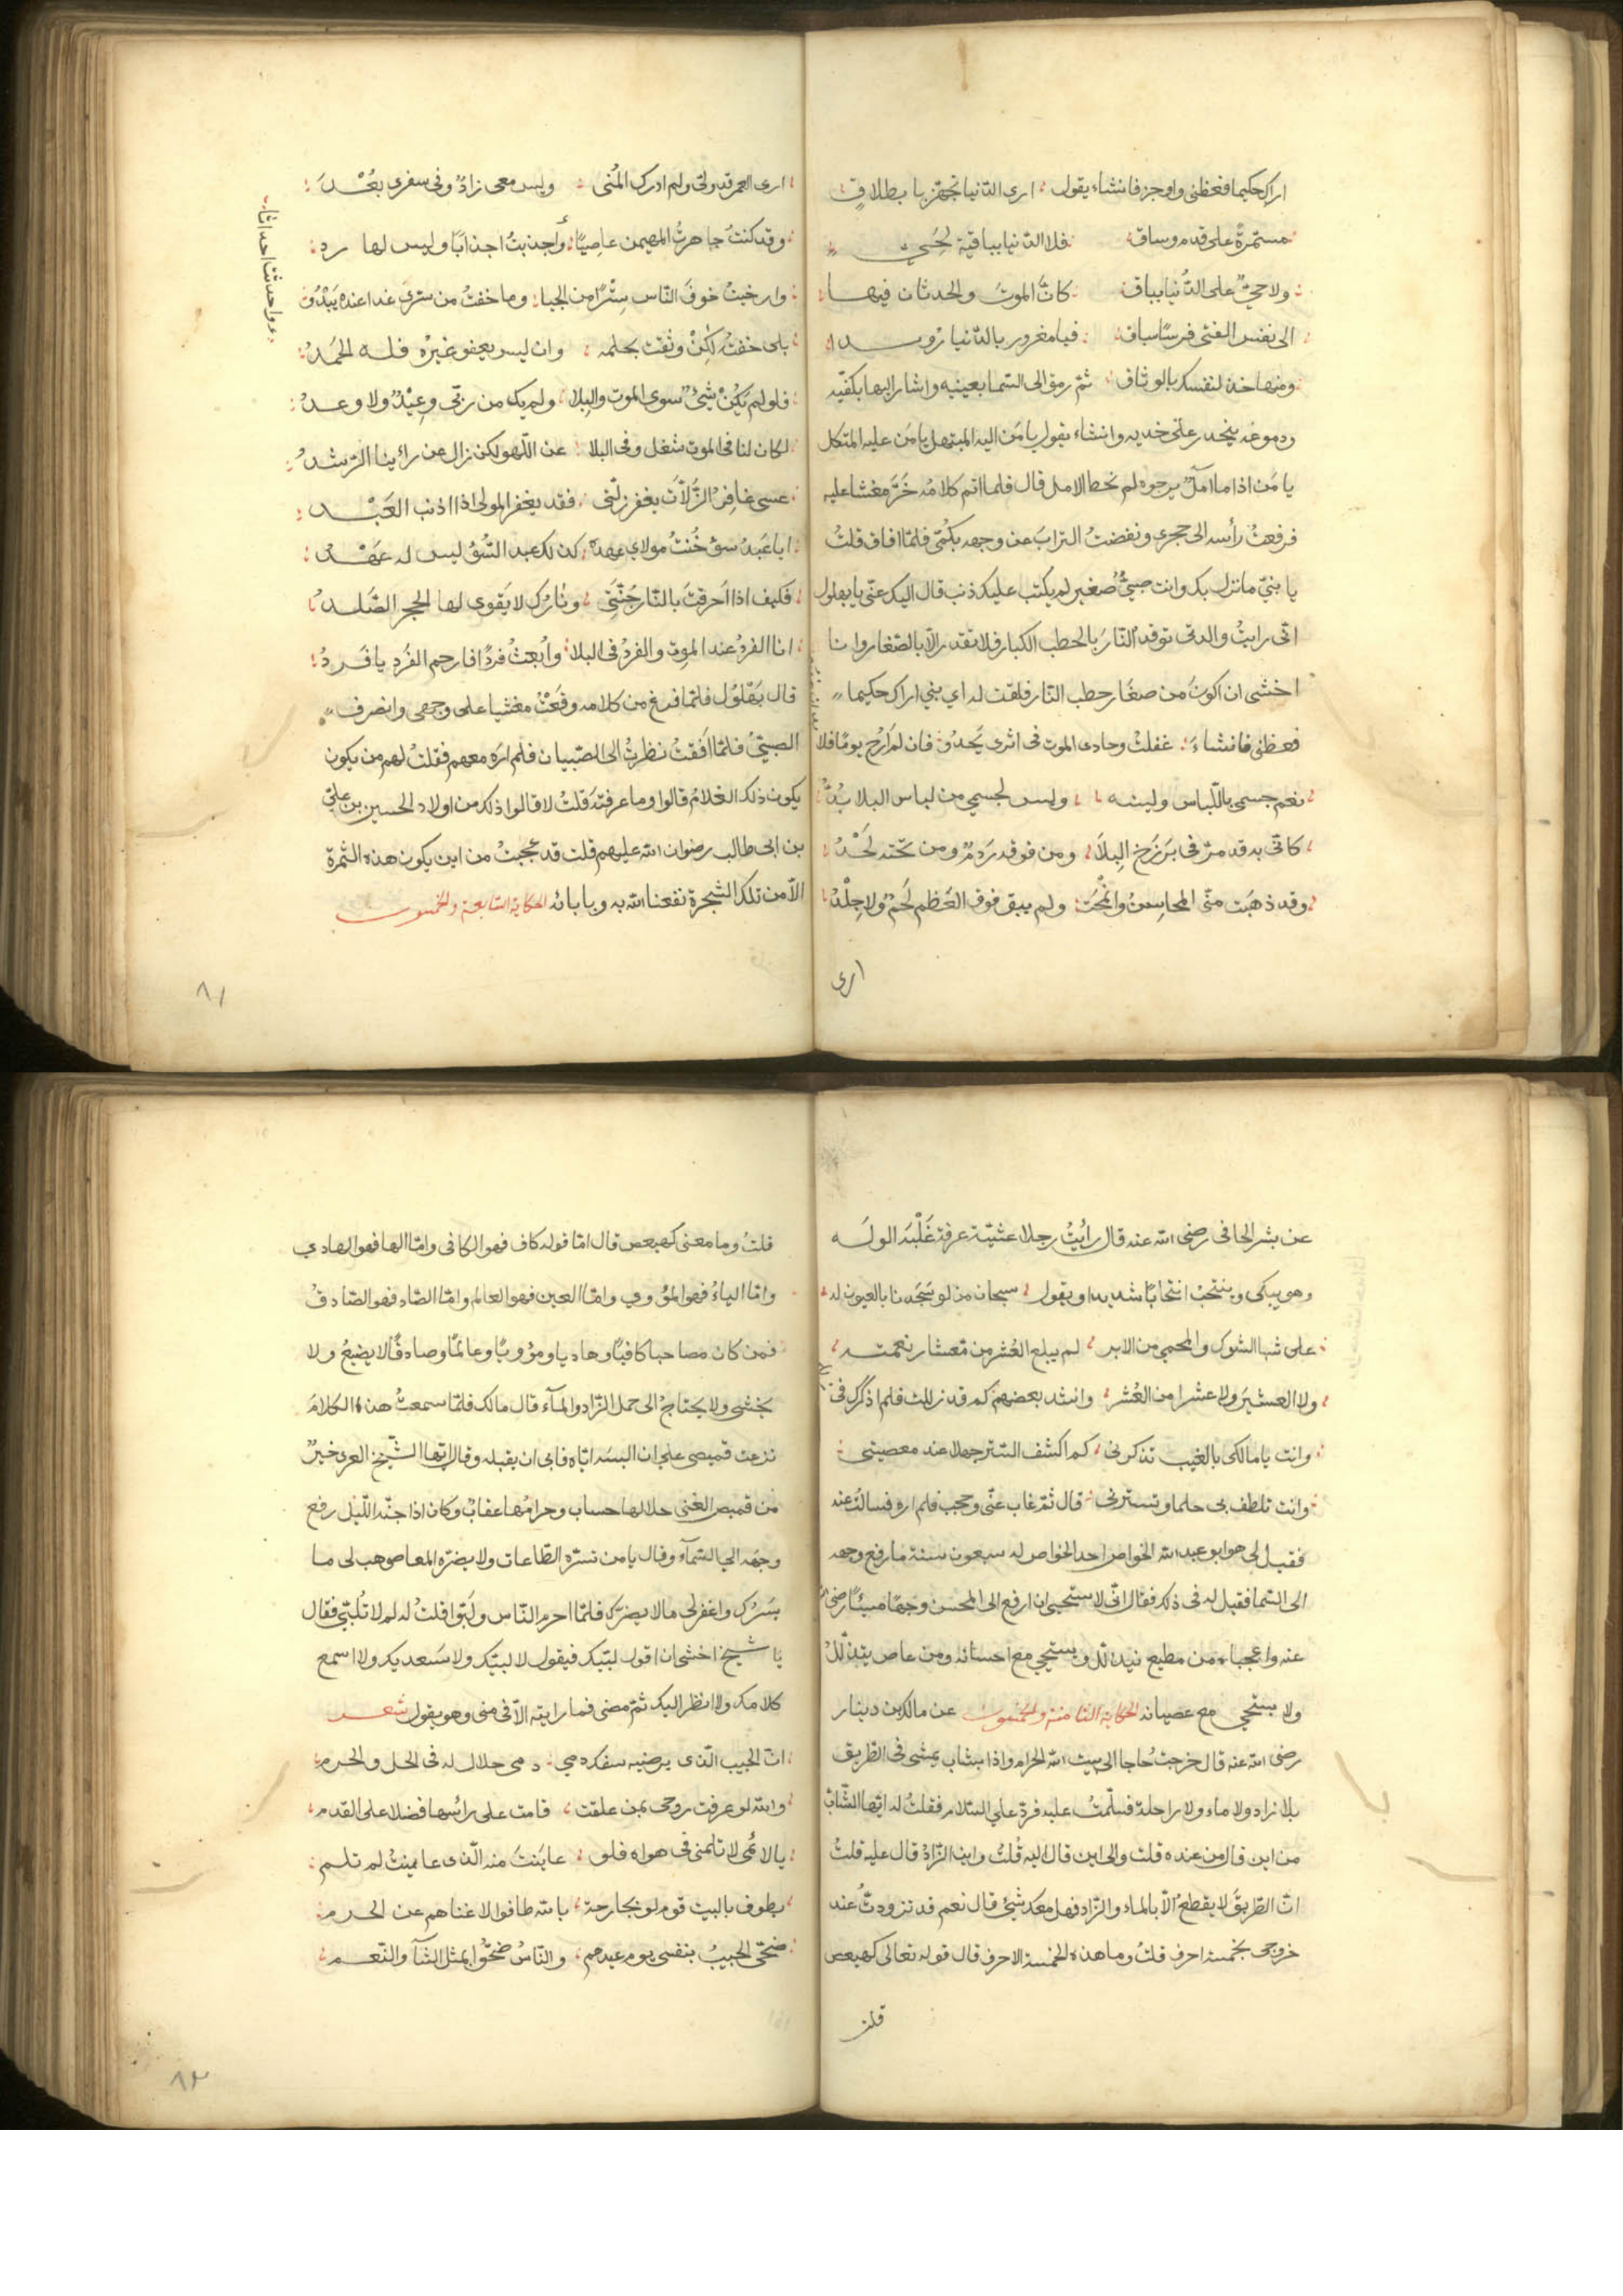 اراك حكيما فعظنى واوجز فانشاء يقول ؛ ارى الدّنيا تجهّز با بطلاقٍ
مستمرةً على قدم وساق ؛ فلا الدّنيا بباقية لحُىىّ
ولا حىٌّ على الدُّنيا بباق ؛ كانّ الموتَ والحدثان فيهـا
الى نفس الفتى فرسًا سباق ؛ فيا مغرور بالدّنيا رُويـدا
ومنها خذ لنفسك بالوثاق ؛ ثمّ رمق الى السّما بعينيه واشار اليها بكفّيه
ودموعه ينحدر على خديه وانشاء يقول يا مَن اليه المبتهل يا مَن عليه المتكل
يا مَن اذا ما آملٌ يرجوه لم يخط الامل قال فلما اتم كلامُه خَرَّ مغشا عليه
فرفعتُ رأسه الى حجرى ونفضتُ الترابَ عن وجهه بكمّى فلمّا افاق قلتُ
يا بنىّ ما نزل بك وانت صبىٌّ صغير لم يكتب عليك ذنب قال اليك عنّى يا بهلول
انّى رايتُ والدتى توقد النّارَ بالحطب الكبار فلا تقد الّا بالصّغار وانا
اخشى ان اكونَ من صغار حطب النّار فلقت له اي بني اراك حكيما
فعظنى فانشاءَ ؛ غفلتُ وحادى الموت فى اثرى يَحدُو فان لم اَرُح يومًا فلا
بدّ ان اغدو
نعم جسمى باللّباس ولينـه ؛ وليس لجسمي من لباس البلا بُدٌّ
كانّى به قد مرّ فى بَرزَخ البِلاَ ؛ ومن فوقه رَدمٌ ومن تحته لَحْدٌ
وقد ذهبَت منّى المحاسِنُ وانمْحَت ؛ ولم يبق فوق العَظم لَحمٌ ولا جِلْدٌ
ارى
ارى العمر قد ولّى ولم ادرك المُنى ؛ وليس معى زادٌ وفى سفرى بعُـْدٌ
وقد كنتُ جاهرتُ المهيمن عاصِيًا ؛ وأحدثتُ احداثا وليس لها رد
واحدثت احداثا
وارخيتُ خوفَ النّاس سِتْرًا من الحيا ؛ وما خفتُ من سترى غدا عنده يَبْدُو
بلى خفتُه لكِنْ وثقت بحلمه ؛ وان ليس يعفو غيرُه فلـه الحَمدُ
فلو لم يَكُنْ شيئٌ سوى الموت والبِلا ؛ ولم يك من ربّى وعِيْدٌ ولا وعـدٌ
لكان لنا فى الموت شغل وفى البلا ؛ عن اللّهو لكن زال عن رائينا الرّشدُ
عسى غافِرُ الزَّلَّات يغفر زلّتى ؛ فقد يغفر المولى اذا اذنب العَبْـد
ايا عَبدَ سوٍ خُنتُ مولاي عهدهُ ؛ كذلك عبد السُّوُ ليس له عَهْـدٌ
فكيف اذا اَحرقتَ بالنّار جُثّتِى ؛ ونارُك لا يَقوى لها الحجر الصَّلـدُ
انا الفردُ عند الموت والفردُ فى البلا ؛ وأُبعثُ فردًا فارحم الفَرد يا فَـردُ
قال بَهْلوُل فلمّا فرغ من كلامه وقَعْتُ مغشيا على وجهى وانصرف
الصبىُّ فلمّا اَفَقتُ نظرتُ الى الصّبيان فلم ارَه معهم فقلتُ لهم من يكون
يكون ذلك الغلامُ قالوا وما عرفتَه قلتُ لا قالوا ذلك من اولاد الحسين بن علىّ
بن ابى طالب رضوان الله عليهم قلت قد عجبتُ من اين يكون هذه الثّمرة
الّا من تلك الشجرة نفعنا الله به وبابائه الحكاية السّابعة والخمسون
٨١
عن بشر الحافى رضى الله عنه قال رأيتُ رجلا عشيّـة عرفة غَلْبَه الولَـه
وهو يبكى وينتحبُ انتحابًا شديدا ويقول ؛ سبحان من لو سَجَدنا بالعيون له
على شبا الشوك والمحمى من الابر ؛ لم يبلغ العُشر من مَعشار نعمتـه
ولا العشيَر ولا عشرا من العُشر ؛ وانشد بعضهم كم قد زللت فلم اذكرك فى
وانت يا مالكى بالغيب تذكرنى ؛ كم اكشف السّتر جهلا عند معصيتى
وانت تلطف بى حلما وتسترنى ؛ قال ثمّ غاب عنّى وحجب فلم اره فسالتُ عنه
فقيـل لى هو ابو عبد الله الخواص احد الخواص له سبعون سنة ما رفع وجهه
الى السّما فقيل له فى ذلك فقال انّى لاستحيى ان ارفع الى المحسن وجهًا مسيئًا رضى الله
عنه وا عجباه من مطيع يتذلّل ويستحيى مع احسانه ومن عاص يتدلّلُ
ولا يستحيى مع عصيانه الحكاية الثامنة والخمسون عن مالك بن دينار
رضى الله عنه قال خرجتُ حاجا الى بيت الله الحرام واذا بشاب يمشى فى الطّريق
بلا زاد ولا ماء ولا راحلة فسلّمتُ عليه فردّ علي السّلام فقلتُ له ايّها الشّابّ
من اين قال من عنده قلت والى اين قال اليه قُلتُ واين الزّادُ قال عليه قلتُ
انّ الطّريقَ لا يقطعُ الّا بالماء والزّاد فهل معك شيئ قال نعم قد تزودتُ عند
خروجى بخمسة احرف قلتُ وما هذه الخمسة الاحرف قال قوله تعالى كهيعص
قلت
قلتُ وما معنى كهيعص قال امّا قوله كاف فهو الكافى وامّا الها فهو الهادي
وامّا الياءُ فهو المؤوي وامّا العين فهو العالم وامّا الصّاد فهو الصّادقُ
فمن كان مصاحبا كافيًا وهاديا ومؤويًا وعالمًا وصادقًا لا يضيعُ ولا
يخشى ولا يحتاجُ الى حمل الزّاد والمآء قال مالك فلمّا سمعتُ هذا الكلامَ
نزعت قميصى على ان البسَه ايّاه فابى ان يقبله وقال ايّها الشّيخ العرى خيرٌ
من قميص الغنى حلالها حساب وحرامُها عقابٌ وكان اذا جنّه اللّيل رفع
وجهَه الى السّمآء وقال يا من تسرّه الطّاعات ولا يضرّه المعاصى هب لى ما
يسَرُّك واغفر لى ما لا يضرّك فلمّا احرم النّاس ولَبّوا قلتُ له لم لا تُلبّى فقال
يا شيخ اخشى ان اقول لبّيك فيقول لا لبّيك ولا سَعديك ولا اسمع
كلامك ولا انظر اليك ثمّ مضى فما رايته الّا فى منى وهو يقول شعـر
انّ الحبيب الّذى يرضيه سفك دمي ؛ دمى حلال له فى الحل والحرم
والله لو عرفت روحى بمن علقت ؛ قامت على رائسها فضلا على القدم
يا لائمى لا تلمنى فى هواه فلو ؛ عاينتَ منه الّذى عاينتُ لم تلـم
يطوف بالبيت قوم لو بجارحة ؛ بالله طافوا لاغناهم عن الحرم
ضحّى الحبيبُ بنفسى يوم عيدهم ؛ والنّاسُ ضحّوا بمثل الشآ والنّعـم
٨٢